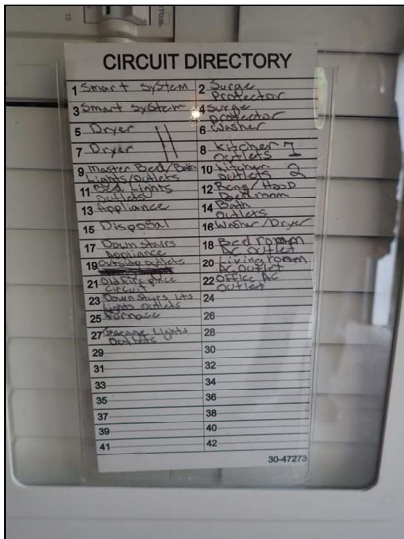 CIRCUIT DIRECTORY
1 Smart system 2 Surge Protector
3 Smart system 4 Surge protector
5 Dryer 6 Washer
7 Dryer 8 Kitchen Outlets 1
9 Master Bed/Bath Lights/Outlets 10 Kitchen Outlets 2
11 Bed Lights Outlets 12 Hood Bedroom
13 Appliance 14 Bath Outlets
15 Disposal 16 Washer/Dryer
17 Down Stairs Appliance 18 Bed room AC Outlet
19 Outside outlets 20 Living room AC Outlet
21 circuit 22 Office AC Outlet
23 Down Stairs Lts Lights Outlets 24
25 Furnace 26
27 Garage Lights Outlets 28
29 30
31 32
33 34
35 36
37 38
39 40
41 42
30-47273